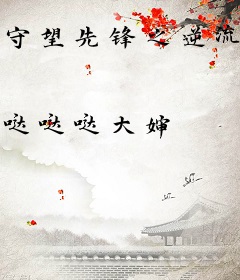 守望先锋之逆流
哒哒哒大婶